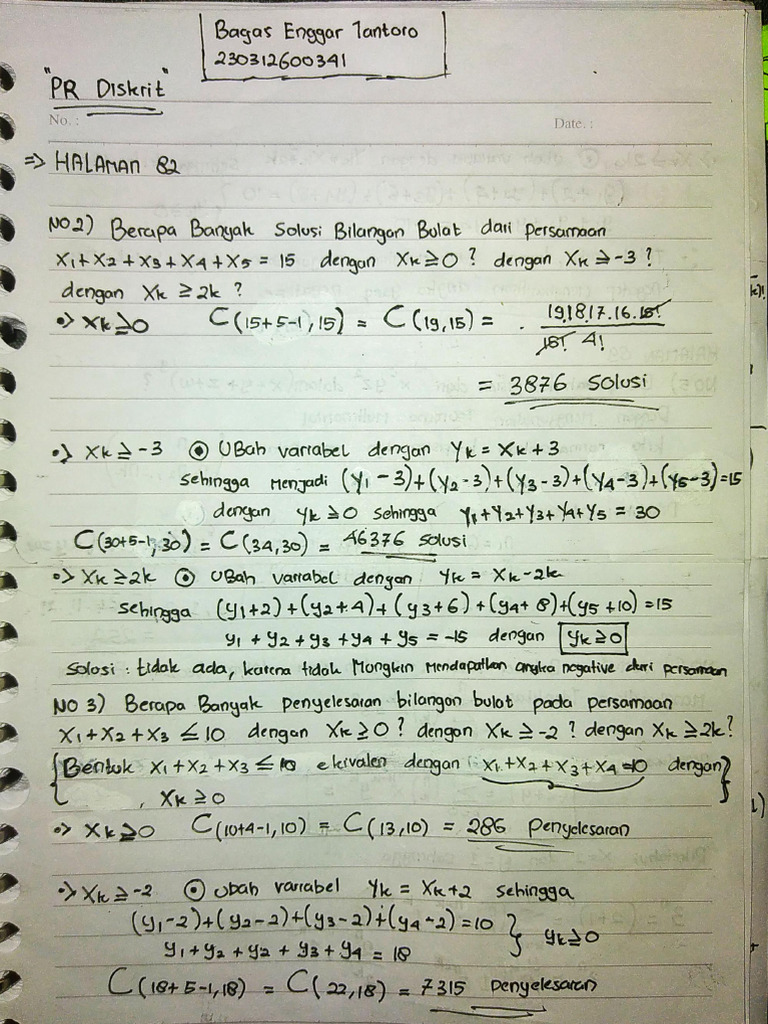 Bagas Enggar Tantoro
230312600341
"PR Diskrit"
No. :
Date. :
=> HALAMAN 82
NO 2) Berapa Banyak Solusi Bilangan Bulat dari Persamaan
X1 + X2 + X3 + X4 + X5 = 15 dengan Xk ≥ 0 ? dengan Xk ≥ -3 ?
dengan Xk ≥ 2k ?
•> Xk ≥ 0 C(15+5-1, 15) = C(19,15) = 19.18.17.16.15! / 15! 4!
= 3876 Solusi
•> Xk ≥ -3 ⊙ Ubah variabel dengan Yk = Xk + 3
sehingga Menjadi (Y1 - 3) + (Y2 - 3) + (Y3 - 3) + (Y4 - 3) + (Y5 - 3) = 15
dengan Yk ≥ 0 sehingga Y1 + Y2 + Y3 + Y4 + Y5 = 30
C(30+5-1, 30) = C(34,30) = 46376 Solusi
•> Xk ≥ 2k ⊙ Ubah variabel dengan Yk = Xk - 2k
sehingga (Y1 + 2) + (Y2 + 4) + (Y3 + 6) + (Y4 + 8) + (Y5 + 10) = 15
Y1 + Y2 + Y3 + Y4 + Y5 = -15 dengan Yk ≥ 0
Solosi : tidak ada, karena tidak Mungkin Mendapatkan angka negative dari persamaan
NO 3) Berapa Banyak penyelesaian bilangan bulat pada persamaan
X1 + X2 + X3 ≤ 10 dengan Xk ≥ 0 ? dengan Xk ≥ -2 ? dengan Xk ≥ 2k ?
{ Bentuk X1 + X2 + X3 ≤ 10 ekivalen dengan : X1 + X2 + X3 + X4 = 10 dengan }
, Xk ≥ 0
•> Xk ≥ 0 C(10+4-1, 10) = C(13,10) = 286 Penyelesaian
•> Xk ≥ -2 ⊙ Ubah variabel Yk = Xk + 2 sehingga
(Y1 - 2) + (Y2 - 2) + (Y3 - 2) + (Y4 - 2) = 10 } Yk ≥ 0
Y1 + Y2 + Y2 + Y3 + Y4 = 18
C(18+5-1, 18) = C(22,18) = 7315 Penyelesaian